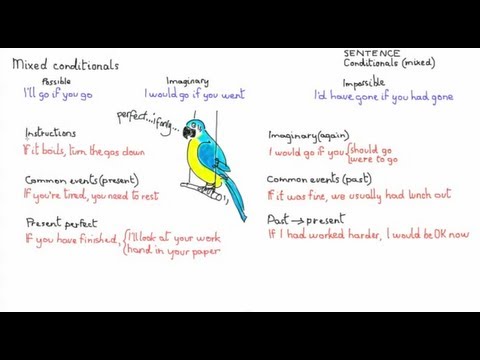 SENTENCE
Mixed conditionals
Conditionals (mixed)
Possible
Imaginary
Impossible
I'll go if you go
I would go if you went
I'd have gone if you had gone
perfect...if only...
Instructions
If it boils, turn the gas down
Common events (present)
If you're tired, you need to rest
Present perfect
If you have finished, { I'll look at your work
hand in your paper
Imaginary (again)
I would go if you { should go
were to go
Common events (past)
If it was fine, we usually had lunch out
Past → present
If I had worked harder, I would be OK now